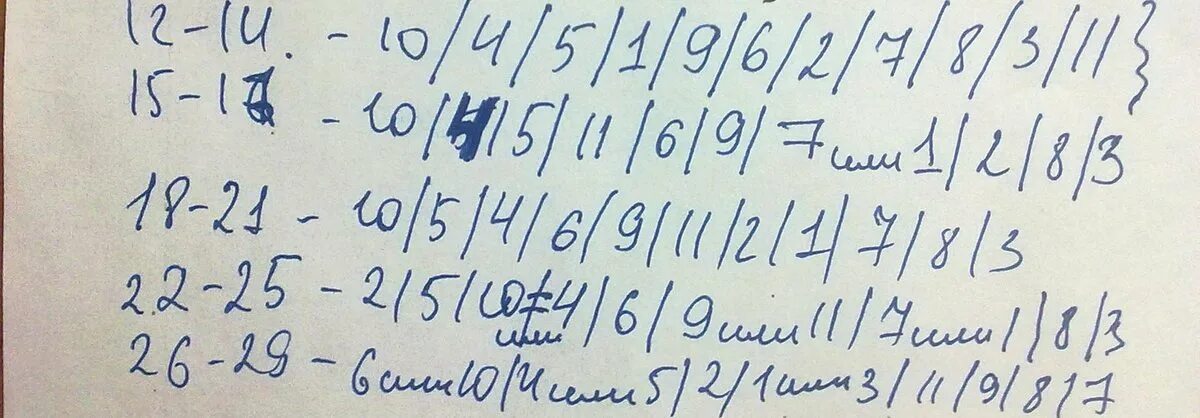 12-14. - 10/4/5/1/9/6/2/7/8/3/11}
15-17 - 10/4/5/11/6/9/7 или 1/2/8/3
18-21 - 10/5/4/6/9/11/2/1/7/8/3
22-25 - 2/5/10 или 4/6/9 или 11/7 или 1/8/3
26-29 - 6 или 10/4 или 5/2/1 или 3/11/9/8/7